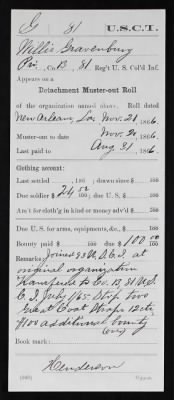 G 81 U.S.C.T.
Willis Gravenburg
Pvt., Co. B, 81 Reg't U. S. Col'd Inf.
Appears on a
Detachment Muster-out Roll
of the organization named above. Roll dated
New Orleans, La. Nov. 21, 1866.
Muster-out to date Nov. 30, 1866.
Last paid to Aug. 31, 1866.
Clothing account:
Last settled , 186 ; drawn since $ 100
Due soldier $ 24 00/100; due U. S. $ 100
Am't for cloth'g in kind or money adv'd $ 100
Due U. S. for arms, equipments, &c., $ 100
Bounty paid $ 100; due $ 100 00/100
Remarks: Joined
original organization
transferred to Co. B, 81 U.S.
C. I. July /65. Stop two
Great Coat Straps 12 cts
$100 additional bounty
(over)
Book mark:
Henderson
Copyist.